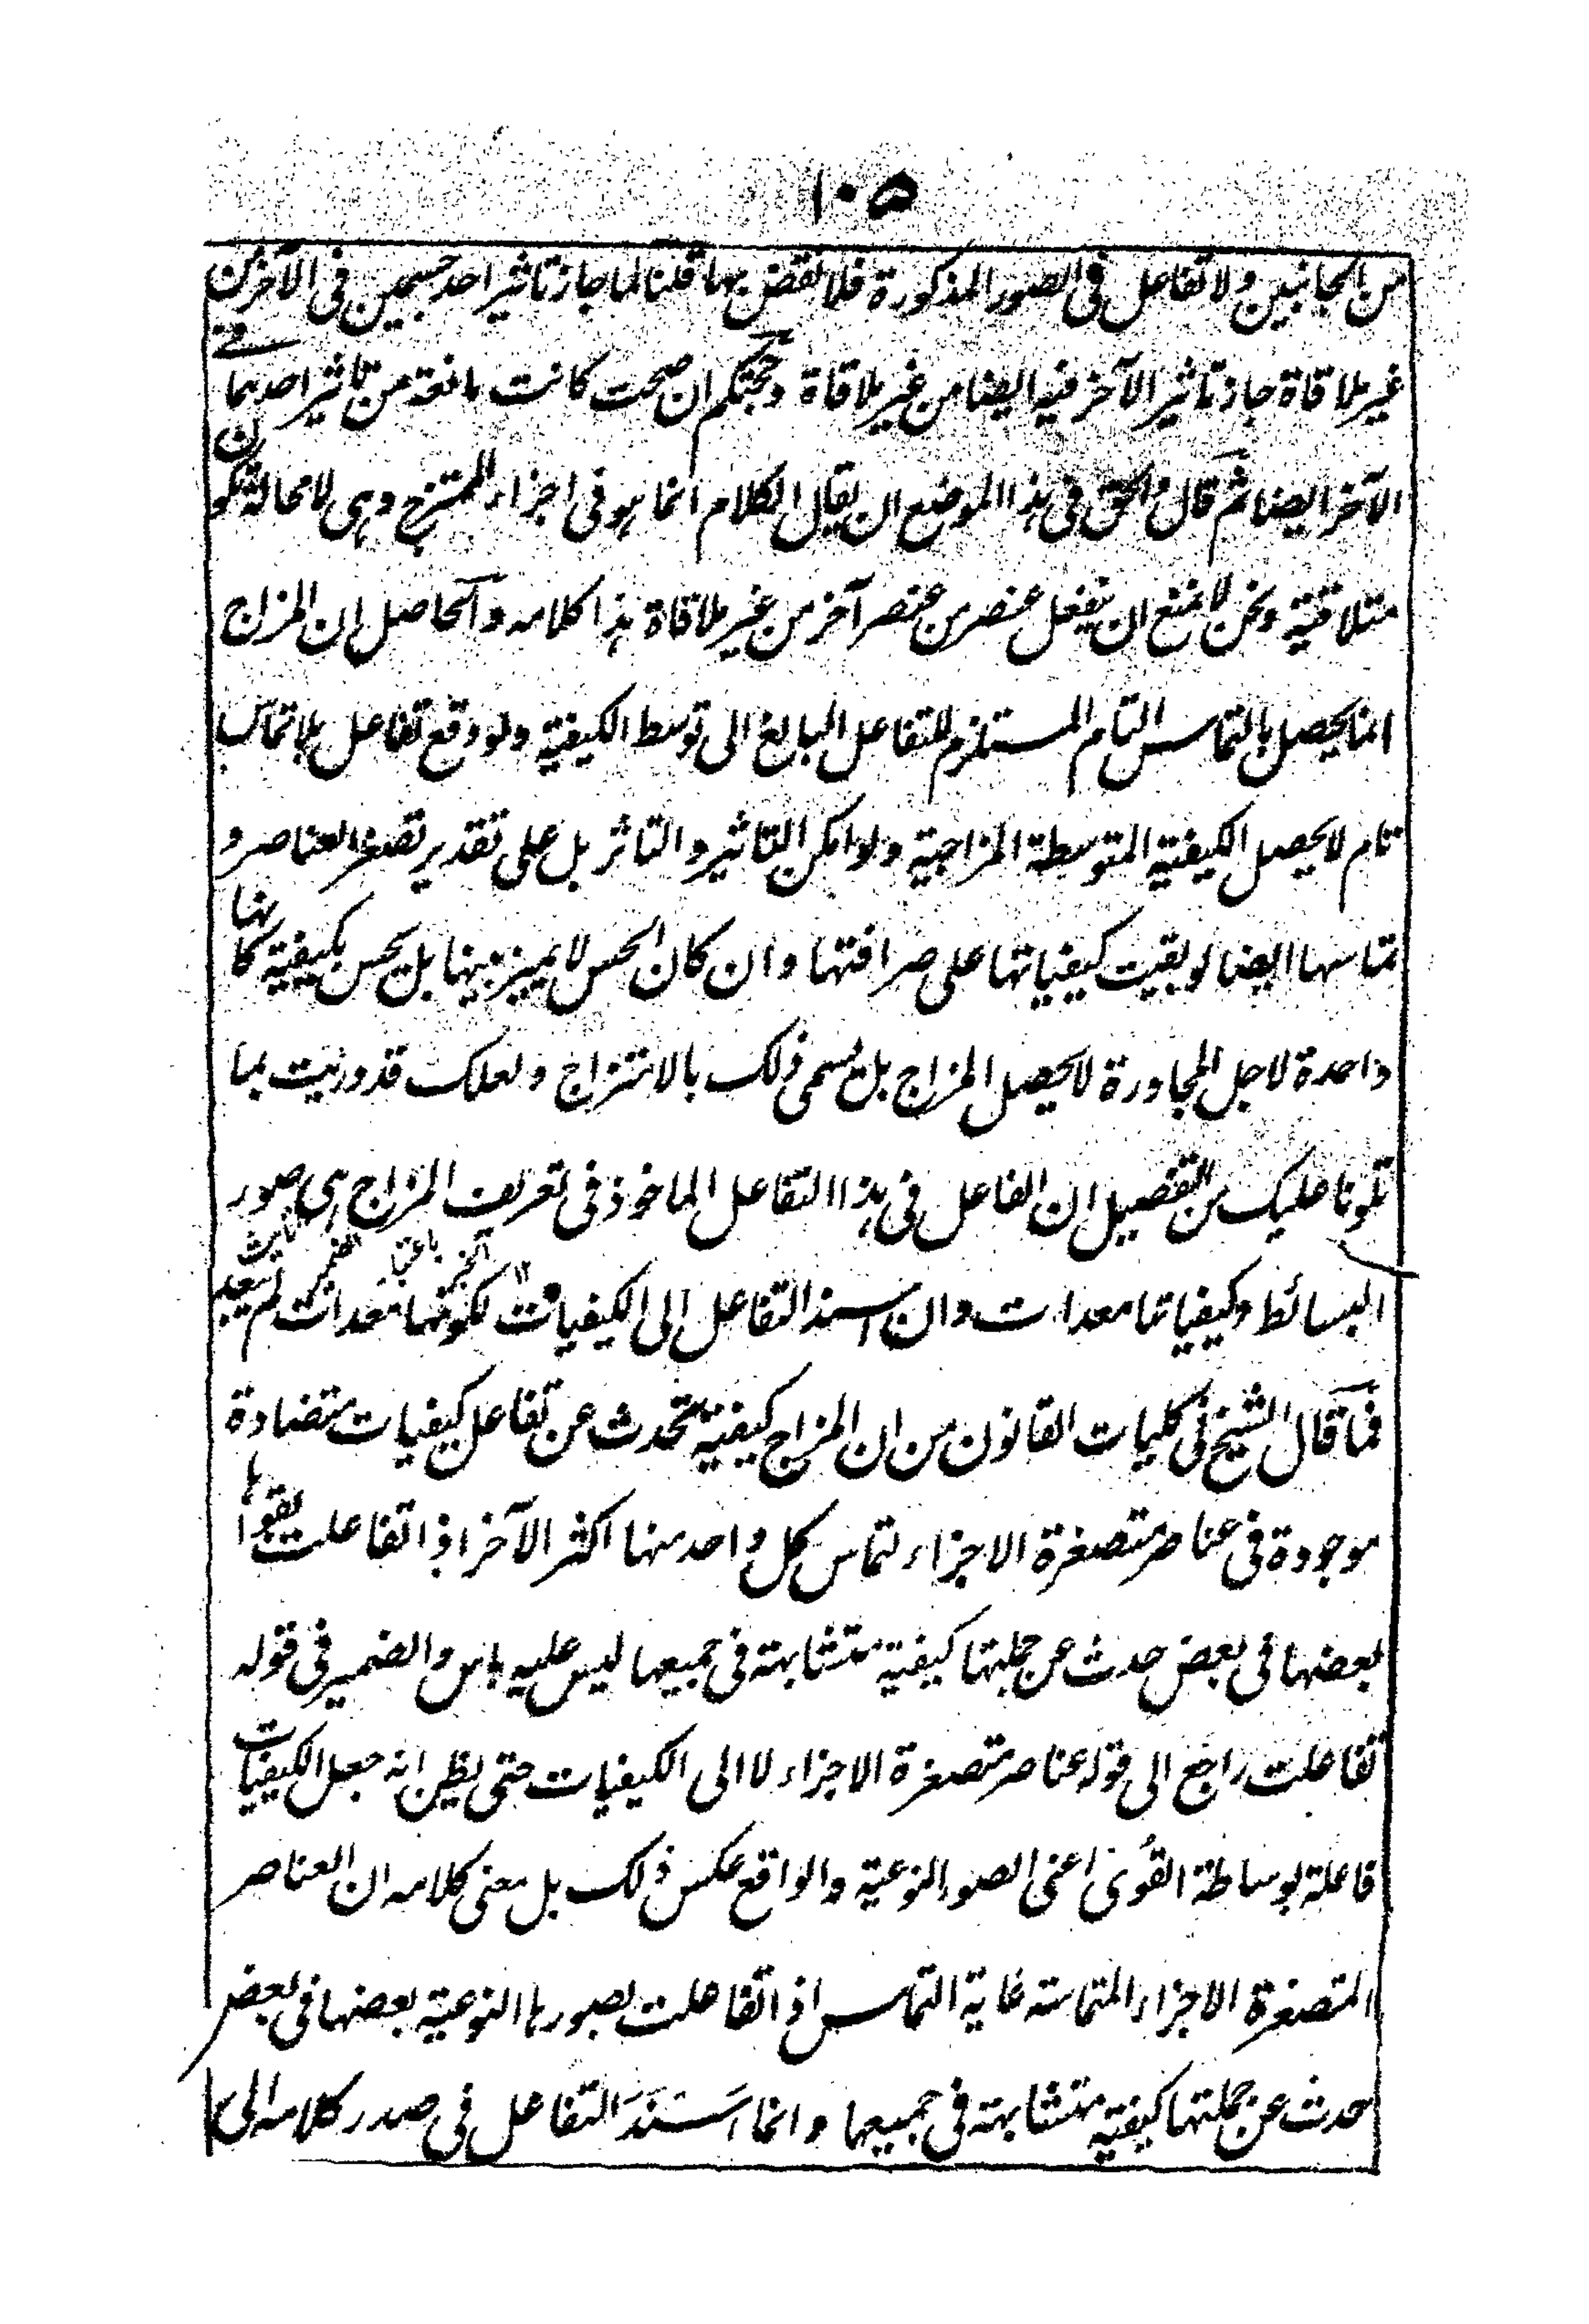 ١٠٥
من الجانبين ولا تفاعل فى الصور المذكورة فلا نقض بها قلنا لما جاز تاثير احد جسمين فى الآخر من
غير ملاقاة جاز تاثير الآخر فيه ايضا من غير ملاقاة وحجتكم ان صحت كانت مانعة من تاثير احدهما فى
الآخر ايضا ثم قال والحق فى هذا الموضع ان يقال الكلام انما هو فى اجزاء الممتزج وهى لا محالة تكون
متلاقية ونحن لا نمنع ان ينفعل عنصر من عنصر آخر من غير ملاقاة هذا كلامه والحاصل ان المزاج
انما يحصل بالتماس التام المستلزم للتفاعل البالغ الى توسط الكيفية ولو وقع تفاعل بلا تماس
تام لا يحصل الكيفية المتوسطة المزاجية ولو امكن التاثير والتاثر بل على تقدير تصغر العناصر و
تماسها ايضا لو بقيت كيفياتها على صرافتها وان كان الحس لا يميز بينها بل يحس بكيفية كانها
واحدة لاجل المجاورة لا يحصل المزاج بل يسمى ذلك بالامتزاج ولعلك قد دريت بما
تلونا عليك من التفصيل ان الفاعل فى هذا التفاعل الماخوذ فى تعريف المزاج هى صور
البسائط وكيفياتها معدات وان اسند التفاعل الى الكيفيات لكونها معدات لم يبعد
فما قال الشيخ فى كليات القانون من ان المزاج كيفية تحدث عن تفاعل كيفيات متضادة
موجودة فى عناصر متصغرة الاجزاء لتماس كل واحد منها اكثر الآخر اذا تفاعلت بقواها
بعضها فى بعض حدث عن جملتها كيفية متشابهة فى جميعها ليس عليه باس والضمير فى قوله
تفاعلت راجع الى قوله عناصر متصغرة الاجزاء لا الى الكيفيات حتى يظن انه جعل الكيفيات
فاعلة بوساطة القُوى اعنى الصور النوعية والواقع عكس ذلك بل معنى كلامه ان العناصر
المتصغرة الاجزاء المتماسة غاية التماس اذا تفاعلت بصورها النوعية بعضها فى بعض
حدث عن جملتها كيفية متشابهة فى جميعها وانما اَسْنَدَ التفاعل فى صدر كلامه الى